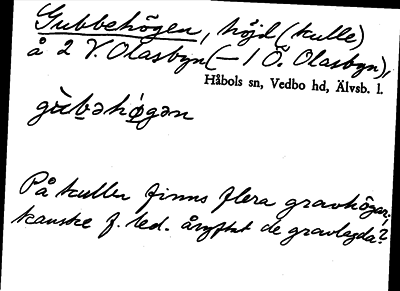 Gubbehögen, höjd (kulle)
å 2 V. Olasbyn (– 1 Ö. Olasbyn),
Håbols sn, Vedbo hd, Älvsb. l.
gùbəhø̀gən
På kullen finns flera gravhögar.
kanske f. led. åsyftat de gravlagda?